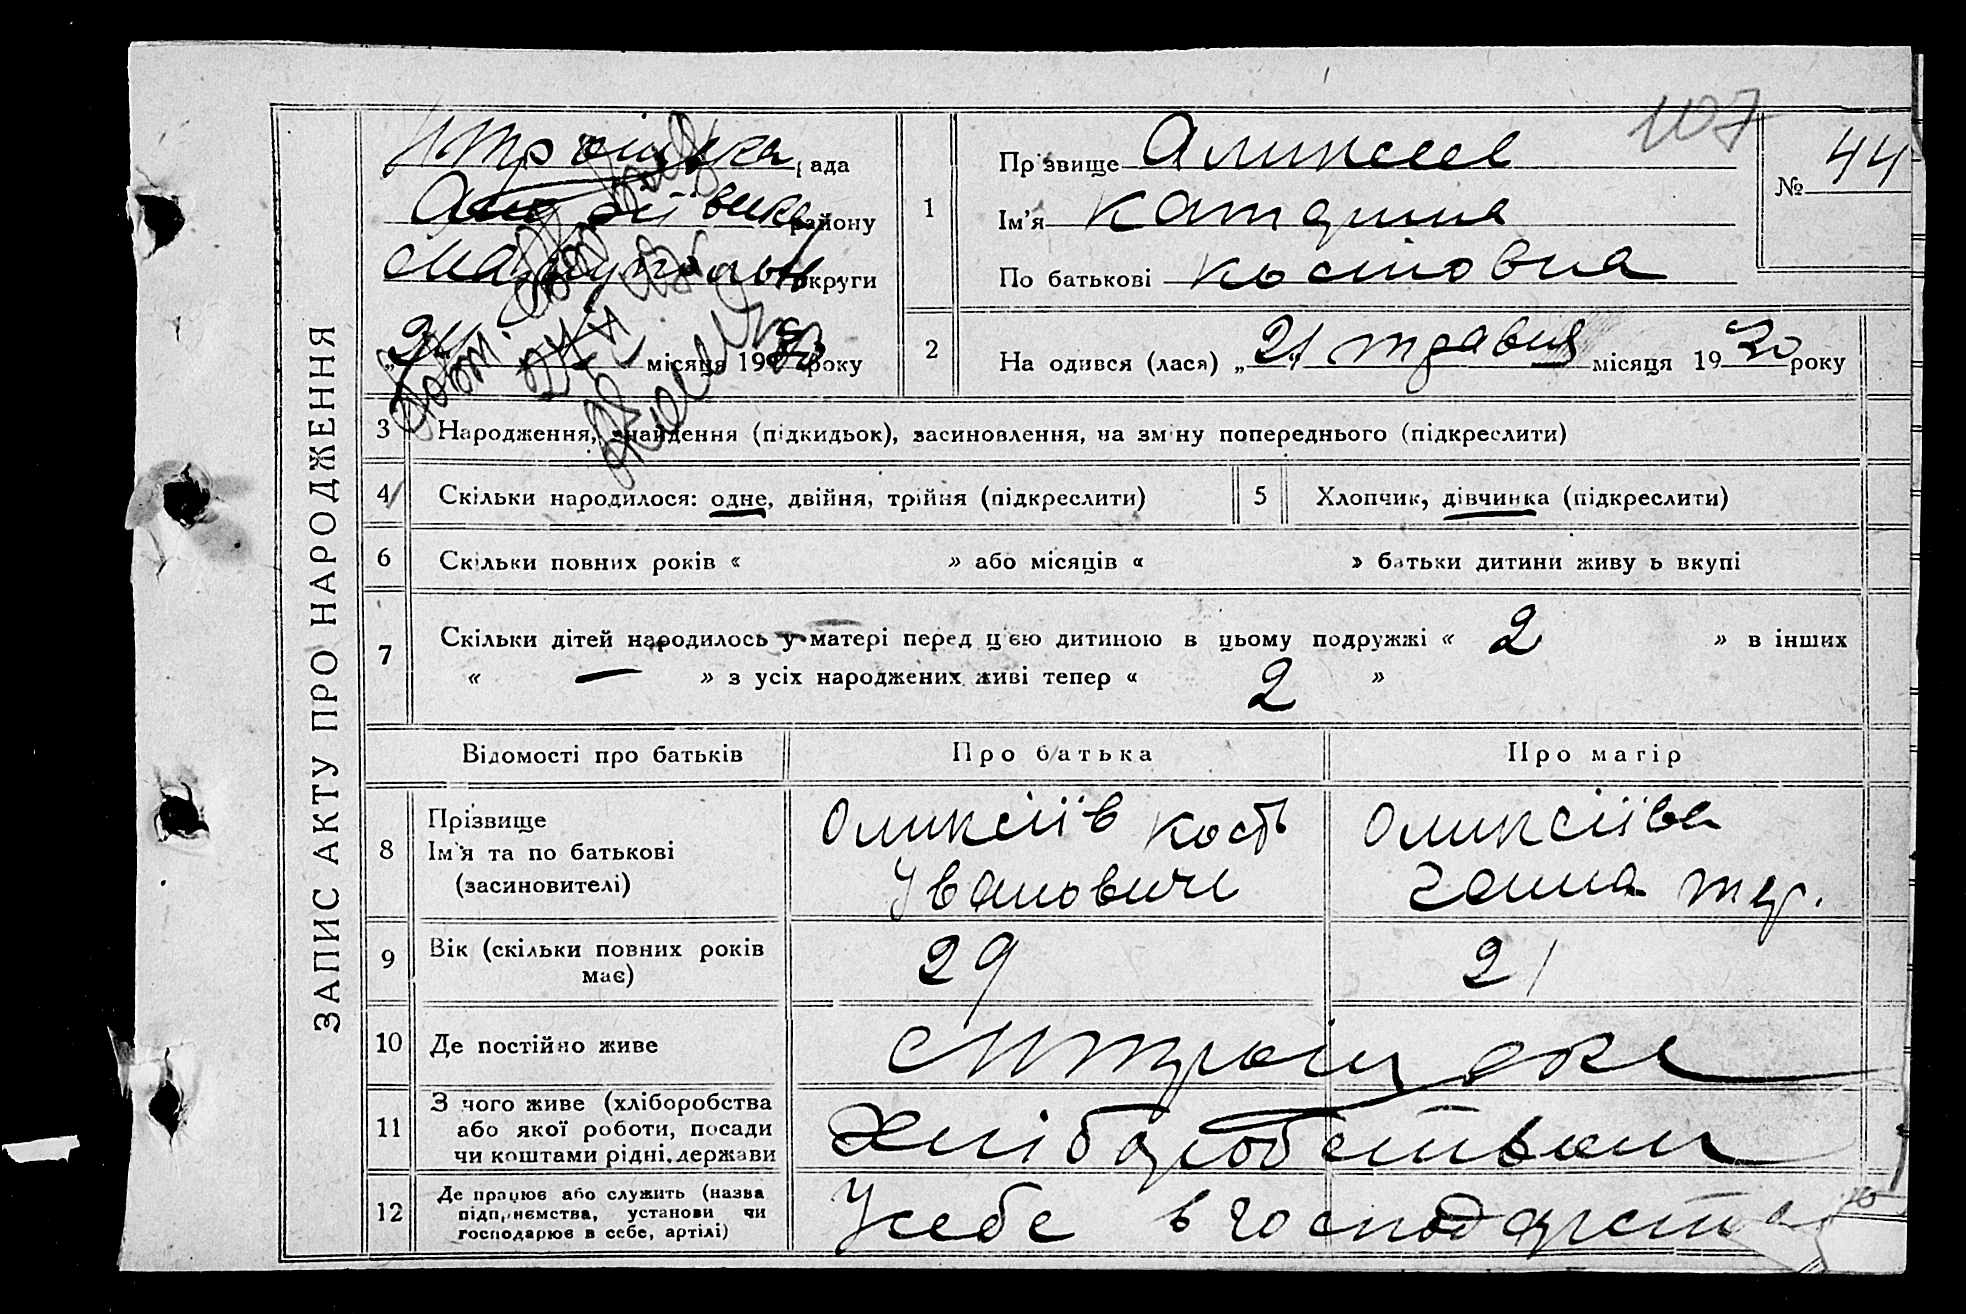 ЗАПИС АКТУ ПРО НАРОДЖЕННЯ
107
рада
району
округи
„21“ місяця 1930 року
1
Прізвище Аликсеев
Ім'я Катерина
По батькові Костовна
№ 44
2
На одився (лася) „21“ травня місяця 1930 року
3 Народження, знайдення (підкидьок), засиновлення, на зміну попереднього (підкреслити)
4 Скільки народилося: одне, двійня, трійня (підкреслити)
5 Хлопчик, дівчинка (підкреслити)
6 Скільки повних років « » або місяців « » батьки дитини живу ь вкупі
7 Скільки дітей народилось у матері перед цією дитиною в цьому подружжі « 2 » в інших
« — » з усіх народжених живі тепер « 2 »
Відомості про батьків Про батька Про матір
8 Прізвище
Ім'я та по батькові
(засиновителі)
Оликсіїв Кость
Ивановичь
Оликсіїва
Ганна
9 Вік (скільки повних років
має)
29 21
10 Де постійно живе
11 З чого живе (хліборобства
або якої роботи, посади
чи коштами рідні, держави
Хліборобством
12 Де працює або служить (назва
підприємства, установи чи
господарює в себе, артілі)
У себе в господарстві